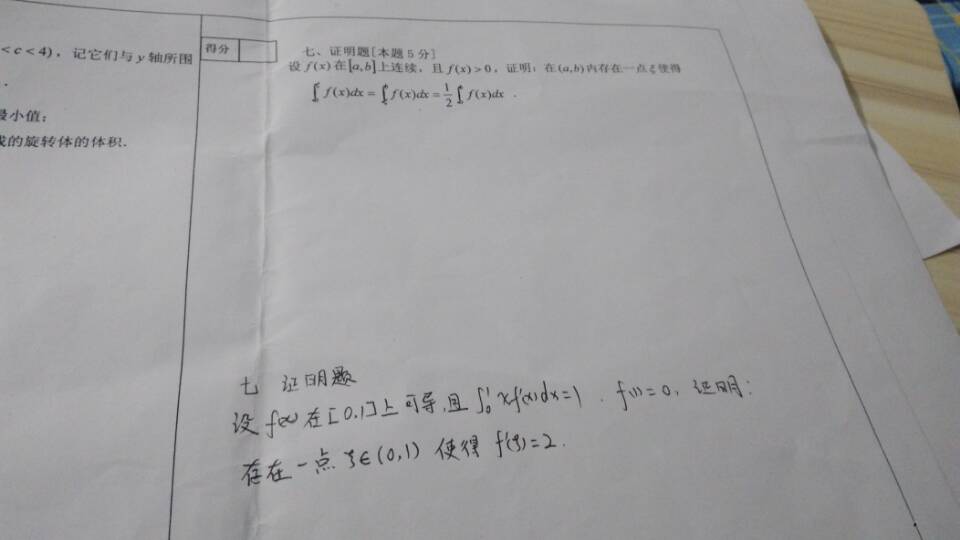 <c<4)，记它们与y轴所围
最小值；
的旋转体的体积.
得分
七、证明题[本题5分]
设f(x)在[a,b]上连续，且f(x)>0，证明：在(a,b)内存在一点ξ使得
∫f(x)dx=∫f(x)dx=1/2∫f(x)dx．
七 证明题
设f(x)在[0,1]上可导,且∫₀¹xf(x)dx=1．f(1)=0，证明：
存在一点ξ∈(0,1)使得f'(ξ)=2．